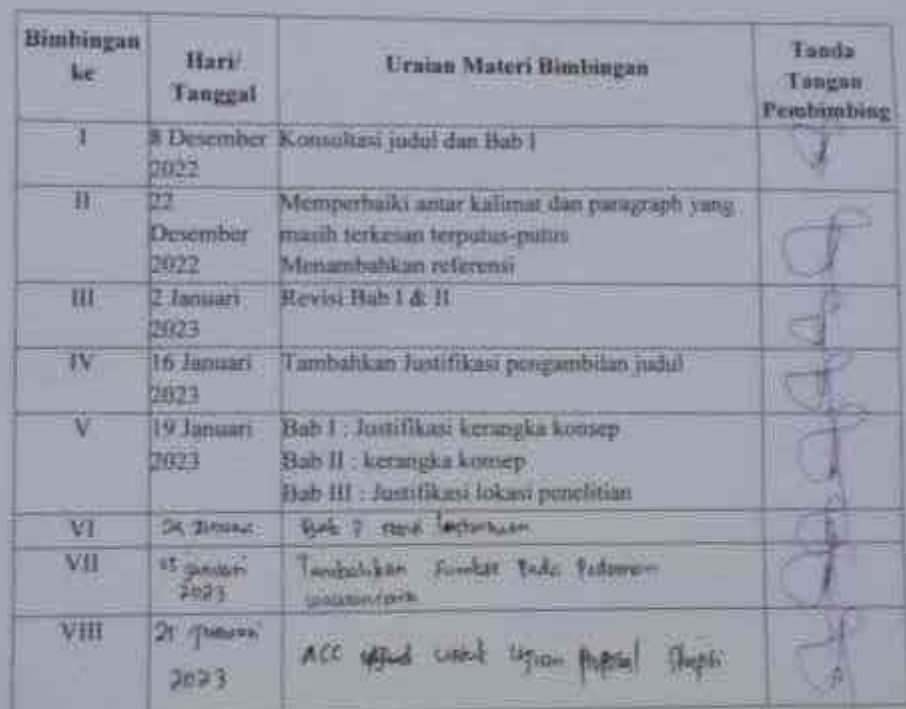 Bimbingan ke
Hari/ Tanggal
Uraian Materi Bimbingan
Tanda Tangan Pembimbing
I
8 Desember 2022
Konsultasi judul dan Bab I
II
22 Desember 2022
Memperbaiki antar kalimat dan paragraph yang
masih terkesan terputus-putus
Menambahkan referensi
III
2 Januari 2023
Revisi Bab I & II
IV
16 Januari 2023
Tambahkan Justifikasi pengambilan judul
V
19 Januari 2023
Bab I : Justifikasi kerangka konsep
Bab II : kerangka konsep
Bab III : Justifikasi lokasi penelitian
VI
VII
Januari 2023
Tambahkan Sumber Pada Pedoman
wawancara
VIII
2023
ACC untuk Ujian Proposal Skripsi